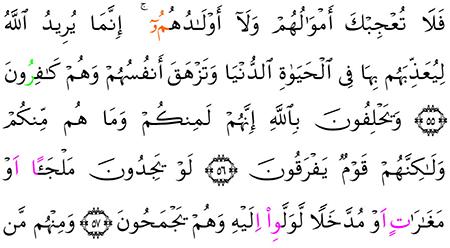 فَلَا تُعْجِبْكَ أَمْوَٰلُهُمْ وَلَآ أَوْلَٰدُهُمُۥٓ ۚ إِنَّمَا يُرِيدُ ٱللَّهُ
لِيُعَذِّبَهُم بِهَا فِى ٱلْحَيَوٰةِ ٱلدُّنْيَا وَتَزْهَقَ أَنفُسُهُمْ وَهُمْ كَٰفِرُونَ
۝٥٥ وَيَحْلِفُونَ بِٱللَّهِ إِنَّهُمْ لَمِنكُمْ وَمَا هُم مِّنكُمْ
وَلَٰكِنَّهُمْ قَوْمٌ يَفْرَقُونَ ۝٥٦ لَوْ يَجِدُونَ مَلْجَـًٔا اَوْ
مَغَٰرَٰتٍ اَوْ مُدَّخَلًا لَّوَلَّوِا اِلَيْهِ وَهُمْ يَجْمَحُونَ ۝٥٧ وَمِنْهُم مَّن